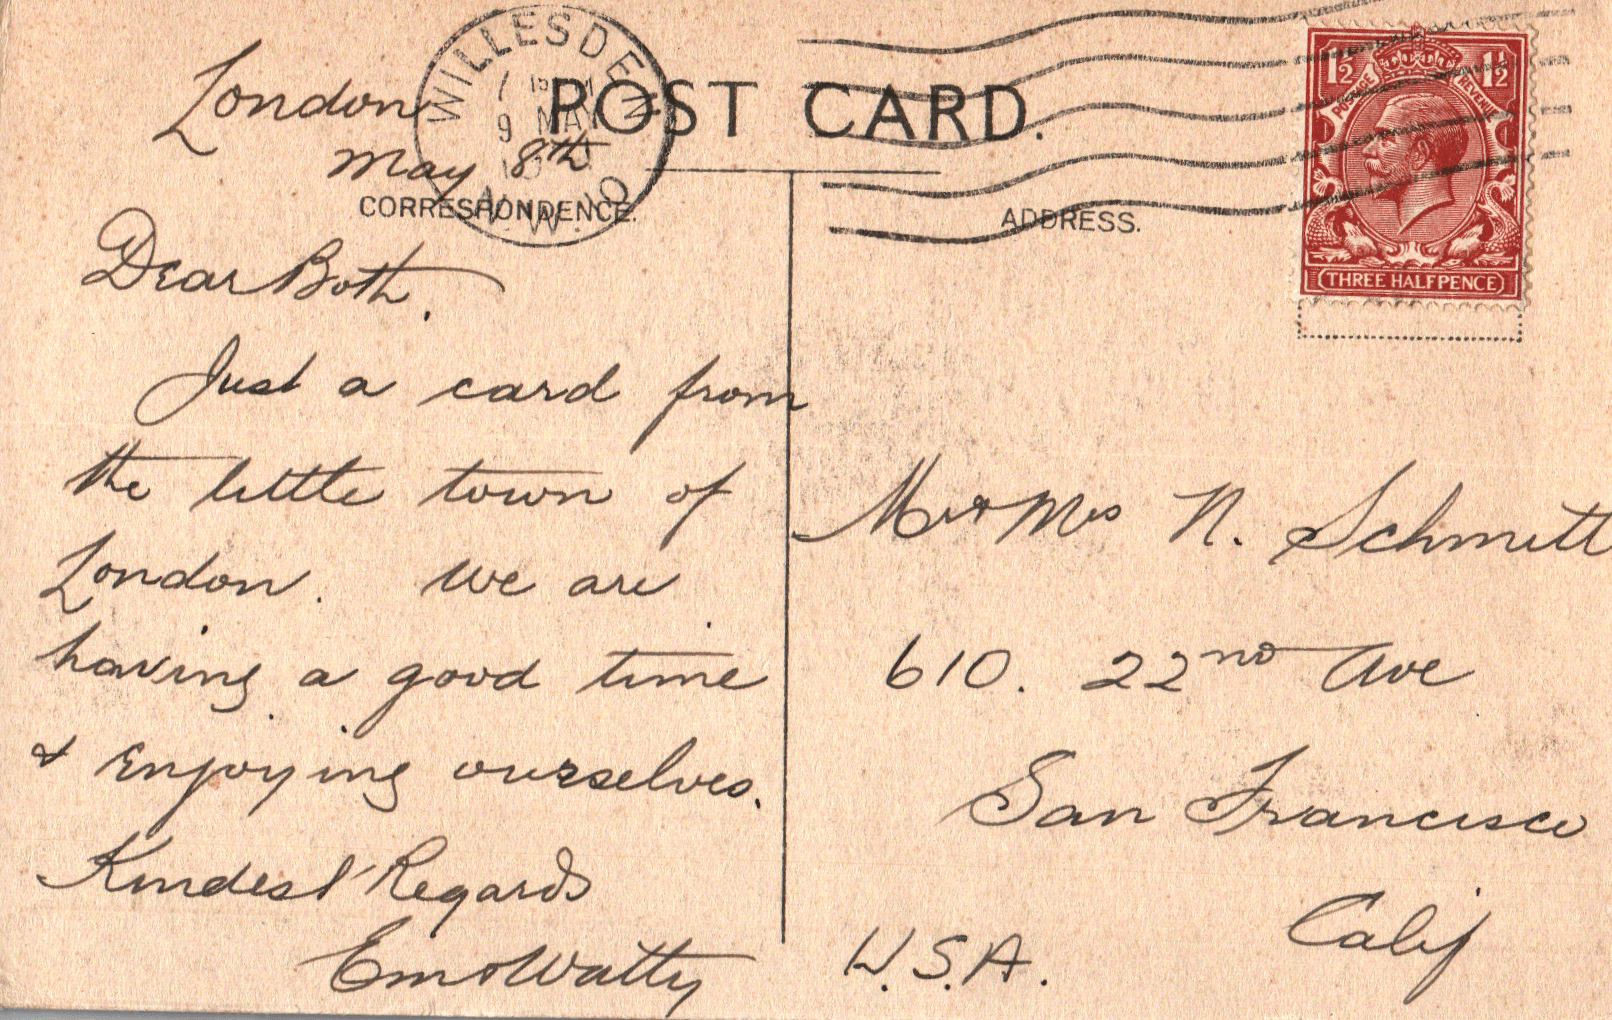 WILLESDEN
9 MAY
N.W.10
POST CARD.
London
May 8th
CORRESPONDENCE.
Dear Both,
Just a card from
the little town of
London. We are
having a good time
& Enjoying ourselves.
Kindest Regards
Em & Watty
ADDRESS.
1½ 1½
POSTAGE REVENUE
THREE HALFPENCE
Mr & Mrs N. Schmitt
610. 22nd Ave
San Francisco
Calif
U.S.A.